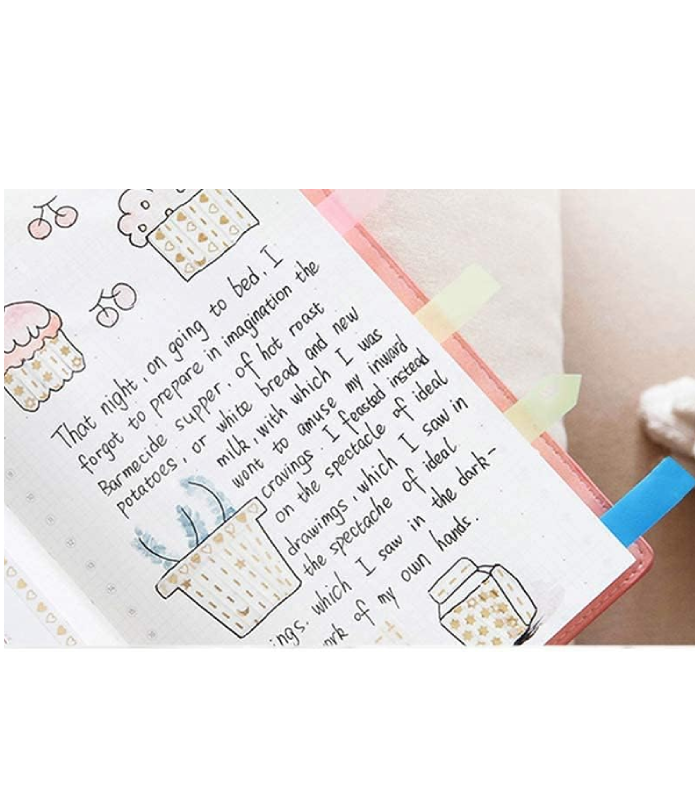 That night, on going to bed, I
forgot to prepare in imagination the
Barmecide supper, of hot roast
potatoes, or white bread and new
milk, with which I was
wont to amuse my inward
cravings. I feasted instead
on the spectacle of ideal
drawimgs, which I saw in
the spectache of ideal
ings. which I saw in the dark-
of my own hands.